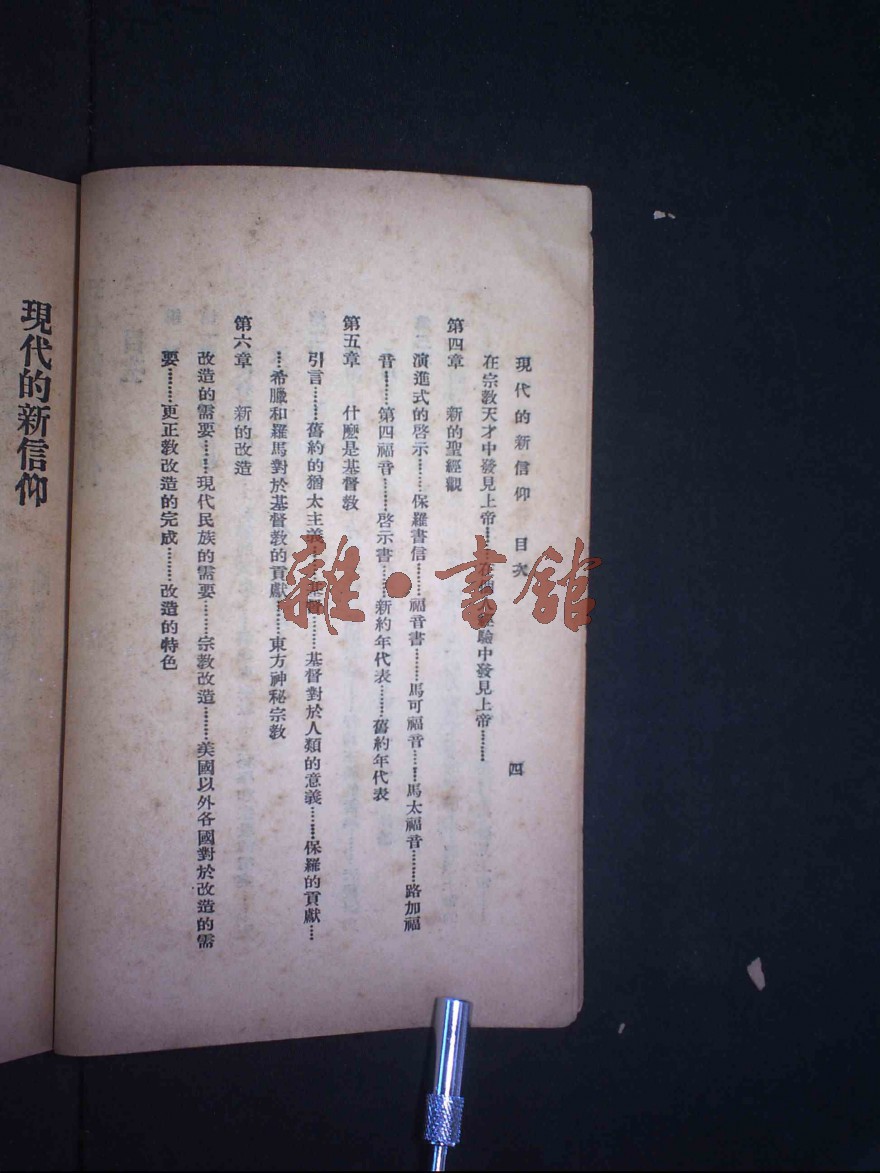 現代的新信仰 目次 四
在宗教天才中發見上帝……在個人經驗中發見上帝………
第四章 新的聖經觀
演進式的啓示………保羅書信………福音書………馬可福音………馬太福音………路加福
音………第四福音………啓示書………新約年代表………舊約年代表
第五章 什麽是基督教
引言………舊約的猶太主義………基督………基督對於人類的意義………保羅的貢獻……
……希臘和羅馬對於基督教的貢獻………東方神秘宗教
第六章 新的改造
改造的需要………現代民族的需要………宗教改造………美國以外各國對於改造的需
要………更正教改造的完成………改造的特色
現代的新信仰
雜·書館